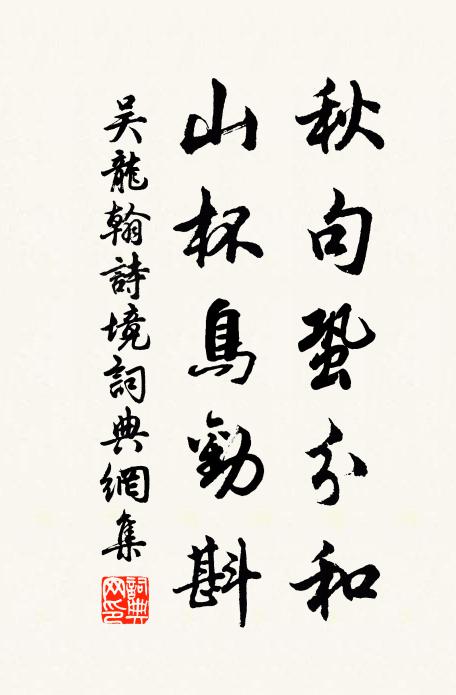 秋句蛩分和
山杯鳥勸斟
吳龍翰詩境詞典網集
詞典網印